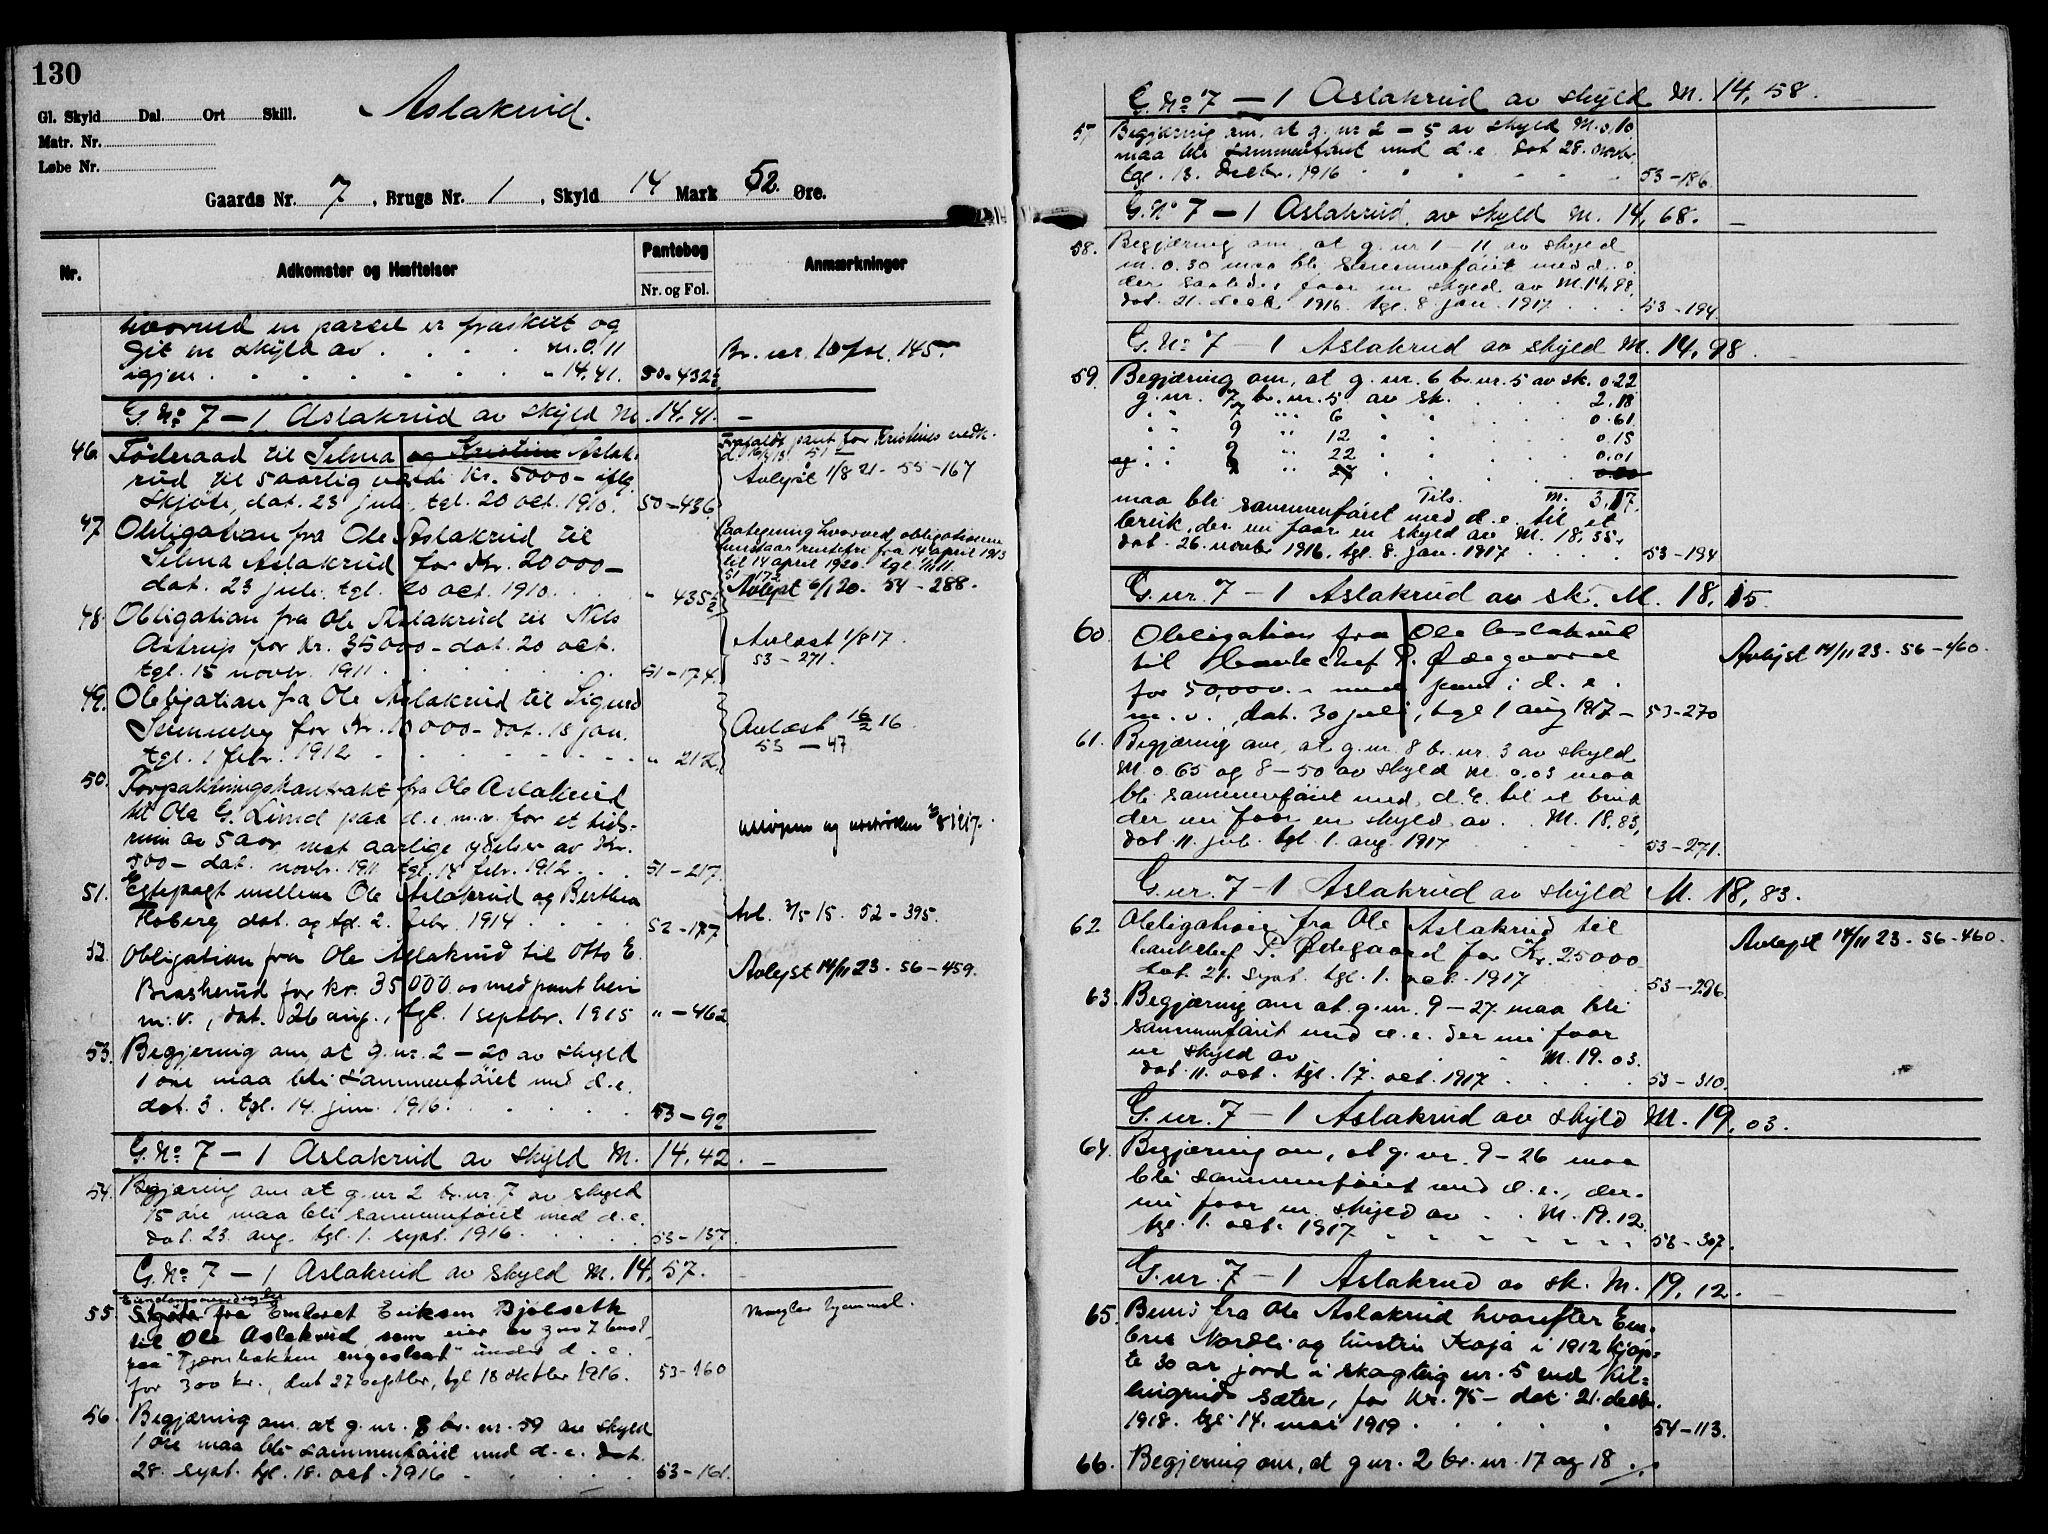 130
Aslakrud.
Gl. Skyld Dal. Ort Skill.
Matr. Nr.
Løbe Nr.
Gaards Nr. 7, Brugs Nr. 1, Skyld 14 Mark 52. Øre.
Nr. Adkomster og Hæftelser Pantebog Anmærkninger
Nr. og Fol.
hvorved en parsel er fraskilt og
git en skyld av . . . . m. 0.11 Br. nr. 10 fol. 145.
igjen . . . . . . . " 14.41. 50-432
G. No 7 – 1 Aslakrud av skyld M. 14,41. –
46. Föderaad til Selma og Kristine Aslak- Frafaldt pant for Kristines vedk.
rud til 5 aarlig værdi Kr. 5000 – iflg. Avlyst 1/8 21 - 55 - 167
Skjöte, dat. 23 juli, tgl. 20 oct. 1910. 50-436
47. Obligation fra Ole Aslakrud til Paategning hvorved obligationen
Selma Aslakrud for Kr. 20000 – henstaar rentefri fra 14 april 1913
til 14 april 1920. tgl.
51 - 172
dat. 23 juli. tgl. 20 oct. 1910. . . . " 435 Avlyst 6/1 20. 54 - 288.
48. Obligation fra Ole Aslakrud til Nils
Astrup for Kr. 35000 – dat. 20 oct. Avlæst 1/8 17.
53 - 271.
tgl. 15 novbr. 1911 . . . . . 51-174.
49. Obligation fra Ole Aslakrud til Sigurd
for Kr. 10000 – dat. 18 jan. Avlæst 16/2 16
53 – 47.
tgl. 1 febr. 1912 . . . . . " 212.
50. Forpaktningskontrakt fra Ole Aslakrud
til Ole G. Lund paa d. e. m. v. for et tids-
rum av 5 aar mot aarlige ydelser av Kr. og 8 1917.
500 – dat. novbr. 1911 tgl. 14 febr. 1912. . . . 51-217.
51. Egtepagt mellem Ole Aslakrud og Berthea
Hoberg dat. og tgl. 2. febr. 1914 . . . . 52-177 Avl. 3/5 15. 52 - 395.
52. Obligation fra Ole Aslakrud til Otto E.
Braskerud for kr. 35000.00 med pant heri Avlyst 14/11 23 - 56-459.
m. v., dat. 26 aug., tgl. 1 septbr. 1915 " -462
53. Begjering om at g. nr. 2 – 20 av skyld
1 øre maa bli sammenføiet med d. e.
dat. 3. tgl. 14. juni. 1916. . . . . 53-92
G. No 7 – 1 Aslakrud av skyld M. 14,42. –
54. Begjæring om at g. nr 2 br. nr. 7 av skyld
15 øre maa bli sammenføiet med d. e.
dat. 23. aug. tgl. 1. sept. 1916. . . . . 53-137.
G. No 7 – 1 Aslakrud av skyld M. 14,57.
Eiendomsoverdragelse
55. Skjöte fra Embret Eriksen Bjölseth Mangler hjemmel.
til Ole Aslakrud som eier av gnr 7 bnr 1
paa "Tjernbakken engeslaat" under d. e.
for 300 kr., dat 27 septbr, tgl 18 oktber 1916. 53-160
56. Begjæring om at g. nr. 8 br. nr. 59 av skyld
1 øre maa bli sammenføiet med d. e. dat.
28. sept. tgl. 18. oct. 1916 . . . . 53-161.
G. No 7 – 1 Aslakrud av skyld M. 14,58.
57. Begjæring om, at g. nr 2 – 5 av skyld M. 0.10
maa bli sammenføiet med d. e. dat 28. novbr.
tgl. 13. decbr. 1916 . . . . . 53-186.
G. No 7 – 1 Aslakrud. av skyld M. 14,68. –
58. Begjæring om, at g. nr 1 – 11 av skyld
m. 0.30 maa bli sammenføiet med d. e.
der saaledes faar en skyld av M. 14,98.
dat. 21. decbr 1916 tgl. 8 jan. 1917 . . . 53-194
G. No 7 – 1 Aslakrud av skyld M. 14,98. –
59. Begjæring om, at g. nr. 6 br. nr. 5 av sk. 0.22
g. nr. 7 br. nr. 5 av sk. . . . 2.18
" " 7 " " 6 . . . 0.61
" " 9 " " 12 . . . 0.15
" " 9 " " 22 . . . 0.01
og
Tils. m. 3.17.
maa bli sammenføiet med d. e. til et
bruk, der nu faar en skyld av M. 18,
dat. 26. novbr 1916. tgl. 8. jan. 1917 . . . . 53-194
G. nr. 7 – 1 Aslakrud av sk. M. 18,15.
60. Obligation fra Ole Aslakrud Avlyst 14/11 23 - 56-460.
til Bankchef P. Ødegaard
for 50,000.- med pant i d. e.
m. v., dat. 30 juli, tgl 1 aug 1917 – 53-270
61. Begjæring om, at g. nr. 8 br. nr. 3 av skyld
M. 0.65 og 8 – 50 av skyld M. 0.03 maa
bli sammenføiet med, d. e. til et bruk
der nu faar en skyld av . . M. 18,83,
dat. 11. juli. tgl. 1. aug. 1917 . . . . 53-271.
G. nr. 7 – 1 Aslakrud av skyld M. 18,83.
62 Obligation fra Ole Aslakrud til Avlyst 14/11 23 - 56-460.
bankchef P. Ødegaard for Kr. 25000
dat. 21. sept. tgl. 1. oct. 1917 . . . 53-296.
63. Begjæring om at g. nr. 9 – 27 maa bli
sammenføiet med d. e. der nu faar
en skyld av . . . . M. 19.03.
dat. 11. oct. tgl. 17. oct. 1917 . . . . 53-310.
G. nr. 7 – 1 Aslakrud av skyld M. 19,03.
64. Begjæring om, at g. nr. 9 – 26 maa
bli sammenføiet med d. e., der
nu faar en skyld av . . M. 19.12.
tgl. 1. oct. 1917 . . . . . 53-307.
G. nr. 7 – 1 Aslakrud av sk. M. 19,12. –
65. Bevis fra Ole Aslakrud hvorefter Em-
bret Nordli og hustru Kaja i 1912 kjøp-
te 30 ar jord i skogteig nr. 5 ved Kil-
lingrud sæter, for Kr. 75 – dat 21. decbr.
1918. tgl. 14. mai 1919 . . . . . 54-113.
66. Begjering om, at g nr. 2 br. nr. 17 og 18